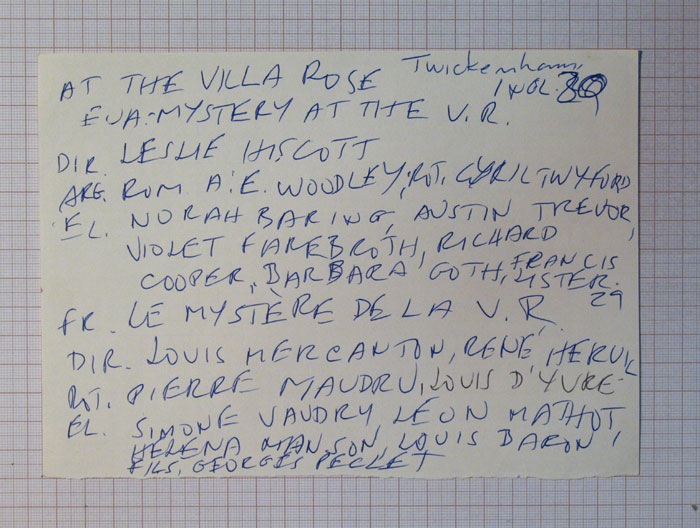 AT THE VILLA ROSE Twickenham,
INGL. 30
EUA: MYSTERY AT THE V.R.
DIR. LESLIE HISCOTT
ARG. ROM A.E. WOODLEY, ROT. CYRIL TWYFORD
EL. NORAH BARING, AUSTIN TREVOR,
VIOLET FAREBROTH, RICHARD
COOPER, BARBARA GOTH, FRANCIS
LISTER.
FR. LE MYSTÈRE DE LA V.R. 29
DIR. LOUIS MERCANTON, RENÉ HERVIL
ROT. PIERRE MAUDRU, LOUIS D'YVRE-
EL. SIMONE VAUDRY LÉON MATHOT
HELENA MANSON, LOUIS BARON,
FILS, GEORGES PECLET